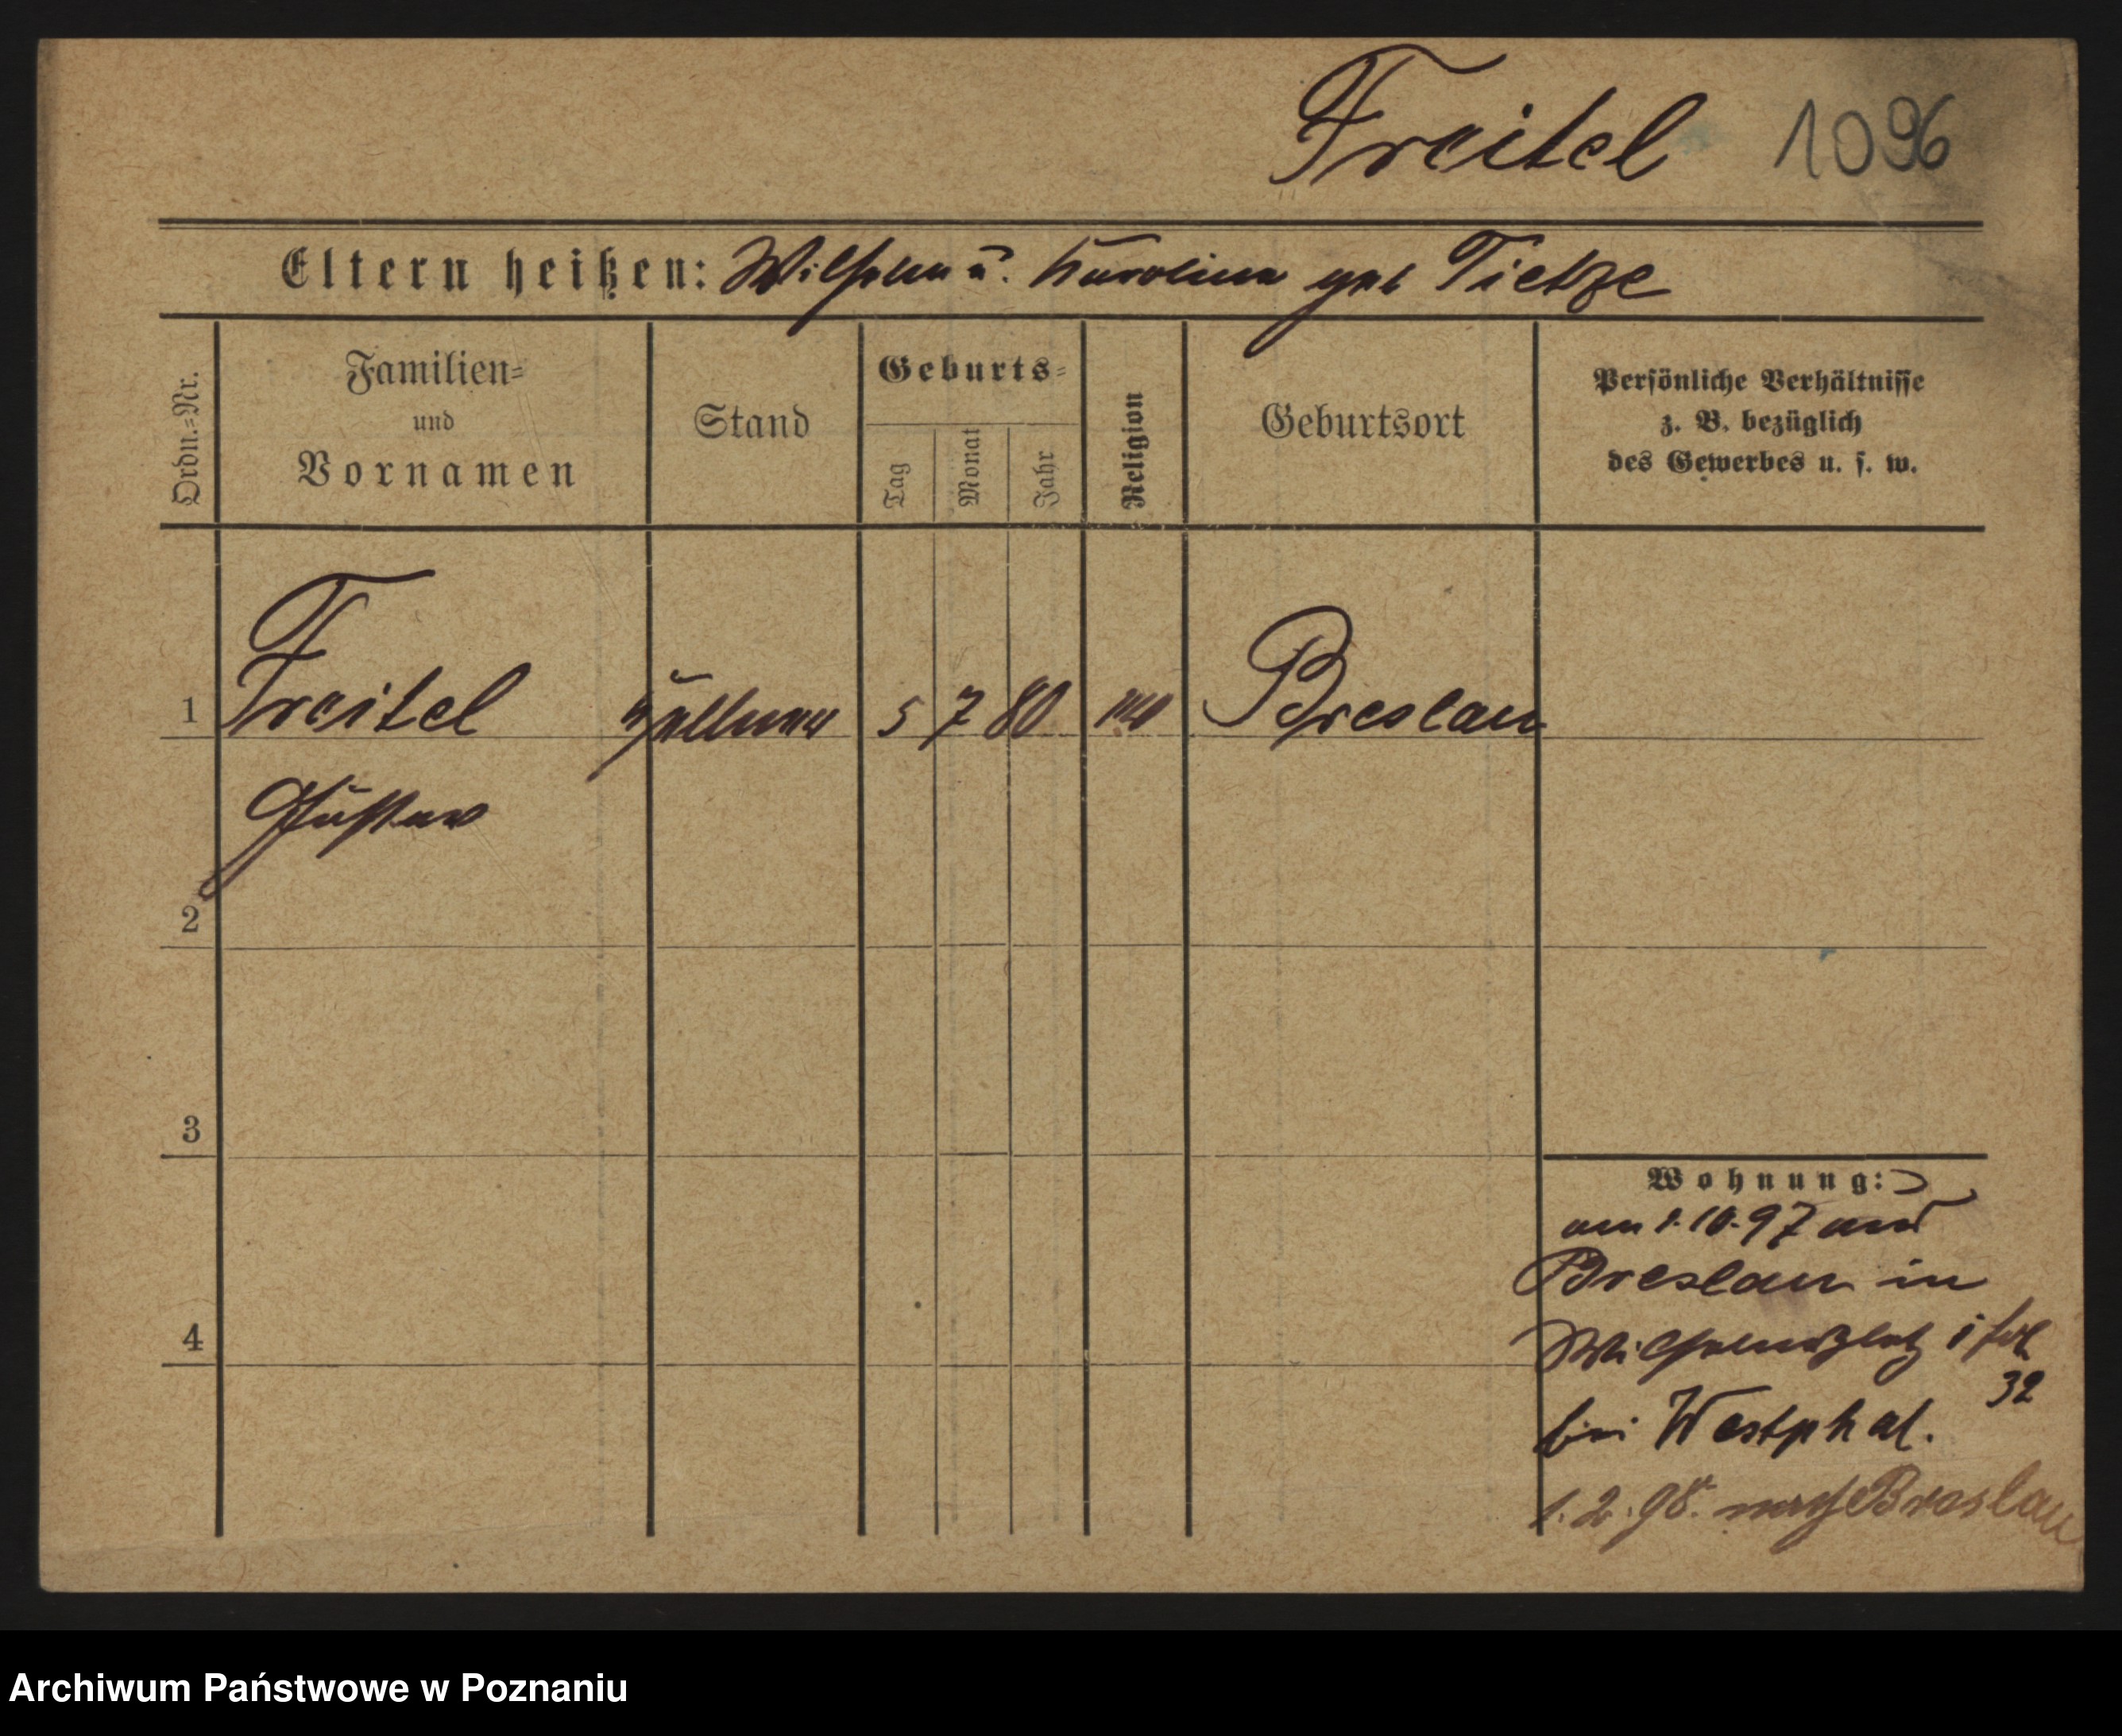 Freitel 1096
Eltern heißen: Wilhelm u. Karoline geb Tietze
Ordn.=Nr.
Familien=
und
Vornamen
Stand
Geburts=
Tag
Monat
Jahr
Religion
Geburtsort
Persönliche Verhältnisse
z. B. bezüglich
des Gewerbes u. s. w.
1 Freitel Kellner 5 7 80 Breslau
Gustav
2
3
4
Wohnung:
am 1.10.97 aus
Breslau in
Wilhelmsplatz
32
bei Westphal.
1.2.98. nach Breslau
Archiwum Państwowe w Poznaniu